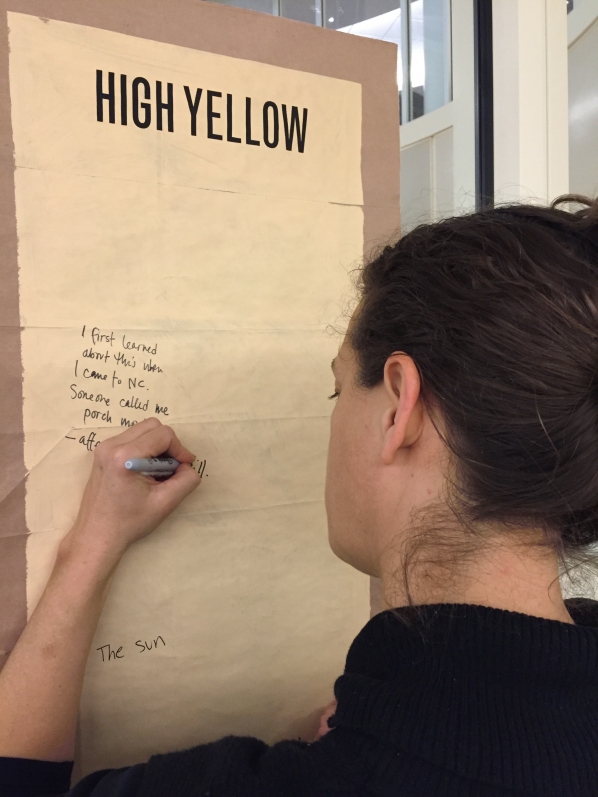 HIGH YELLOW
I first learned
about this when
I came to NC.
Someone called me
porch
The sun